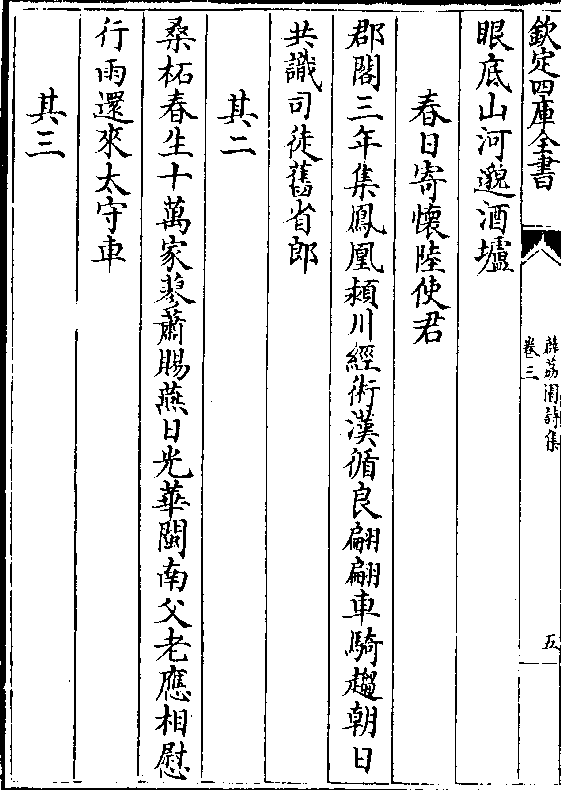 欽定四庫全書
薜荔園詩集
卷三
五
眼底山河邈酒壚
春日寄懷陸使君
郡閣三年集鳳凰潁川經術漢循良翩翩車騎趨朝日
共識司徒舊省郎
其二
桑柘春生十萬家蓼蕭賜燕日光華閩南父老應相慰
行雨還來太守車
其三